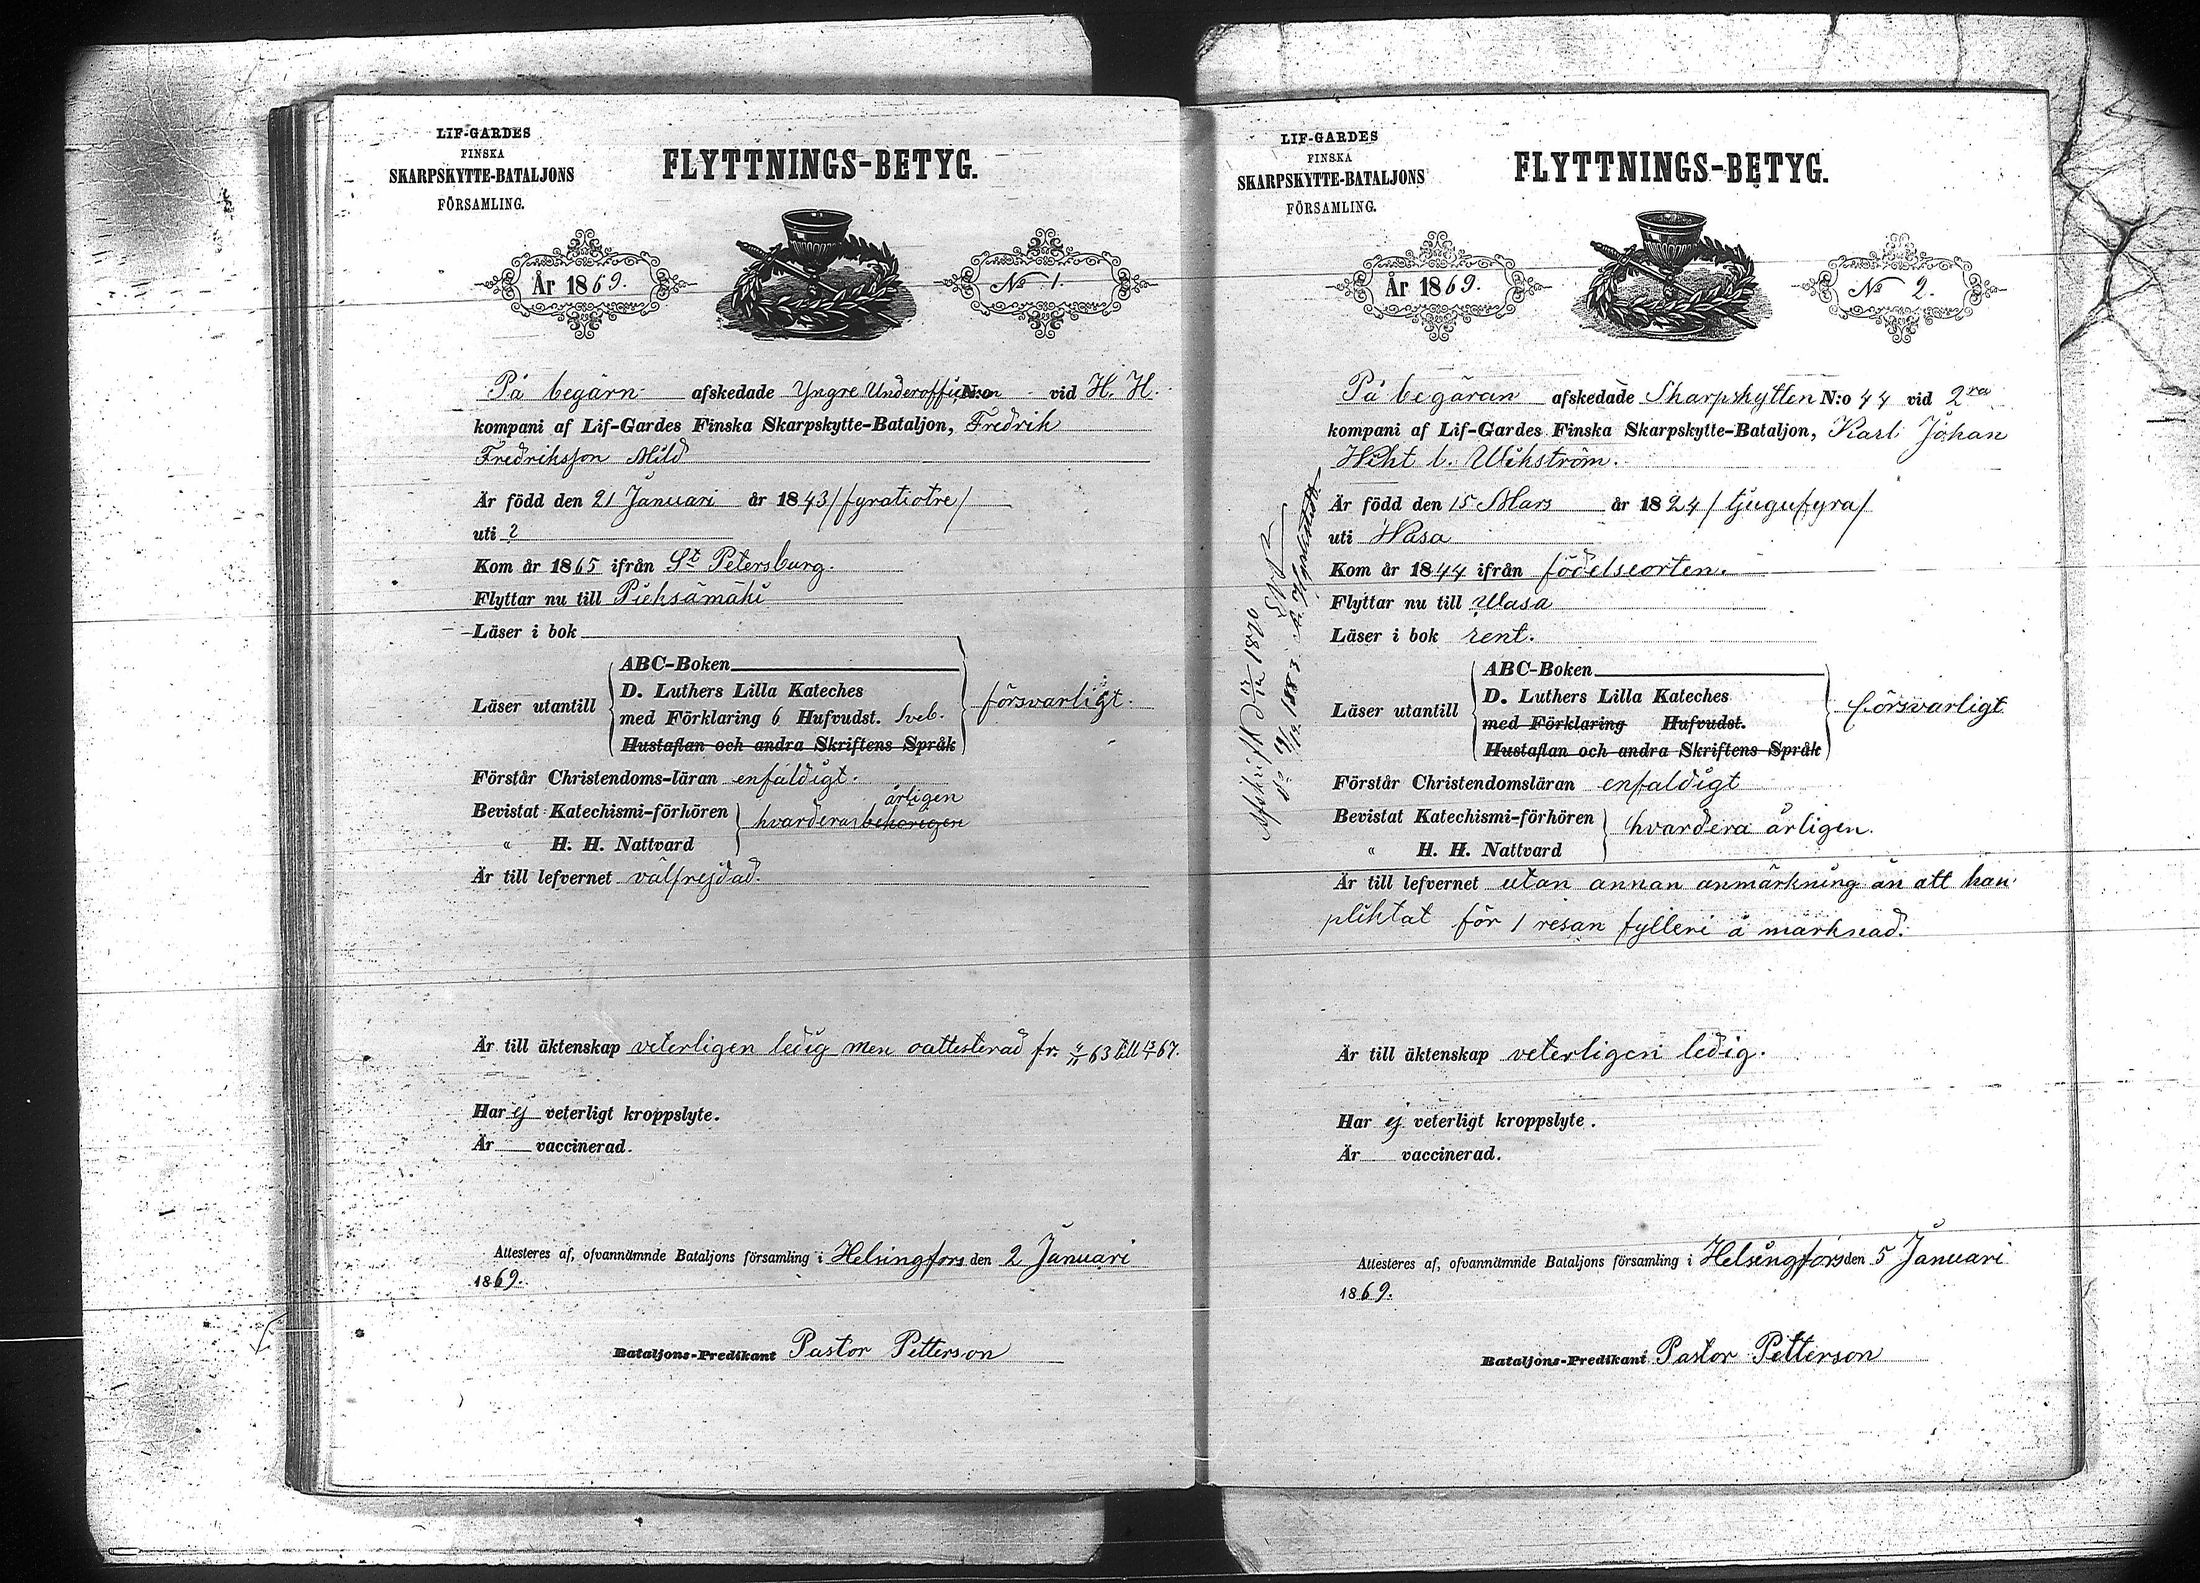 LIF-GARDES
FINSKA
SKARPSKYTTE-BATALJONS
FÖRSAMLING.
FLYTTNINGS-BETYG.
År 1869.
No 1.
På begärn afskedade Yngre Underofficeren N:o - vid H. H.
kompani af Lif-Gardes Finska Skarpskytte-Bataljon, Fredrik
Fredriksson Mild
Är född den 21 Januari år 1843 /fyratiotre/
uti ?
Kom år 1865 ifrån St Petersburg.
Flyttar nu till Pieksämäki
Läser i bok
Läser utantill
ABC-Boken
D. Luthers Lilla Kateches
med Förklaring 6 Hufvudst. Sveb.
Hustaflan och andra Skriftens Språk
försvarligt.
Förstår Christendoms-läran enfaldigt.
årligen
Bevistat Katechismi-förhören
hvardera behörigen
" H. H. Nattvard
Är till lefvernet välfrejdad.
Är till äktenskap veterligen ledig men oattesterad fr. 63 till 67.
Har ej veterligt kroppslyte.
Är vaccinerad.
Attesteres af, ofvannämnde Bataljons församling i Helsingfors den 2 Januari
1869.
Bataljons-Predikant Pastor Petterson
LIF-GARDES
FINSKA
SKARPSKYTTE-BATALJONS
FÖRSAMLING.
FLYTTNINGS-BETYG.
År 1869.
No 2.
På begäran afskedade Skarpskytten N:o 44 vid 2ra
kompani af Lif-Gardes Finska Skarpskytte-Bataljon, Karl Johan
Wikström.
Är född den 15 Mars år 1824 /tjugufyra/
uti Wasa
Kom år 1844 ifrån födelseorten.
Flyttar nu till Wasa
Läser i bok rent.
Läser utantill
ABC-Boken
D. Luthers Lilla Kateches
med Förklaring Hufvudst.
Hustaflan och andra Skriftens Språk
försvarligt
Förstår Christendomsläran enfaldigt
Bevistat Katechismi-förhören
hvardera årligen.
" H. H. Nattvard
Är till lefvernet utan annan anmärkning än att han
pliktat för 1 resan fylleri å marknad.
Är till äktenskap veterligen ledig.
Har ej veterligt kroppslyte.
Är vaccinerad.
Attesteres af, ofvannämnde Bataljons församling i Helsingfors den 5 Januari
1869.
Bataljons-Predikant Pastor Petterson
Afskrift 1870
1883